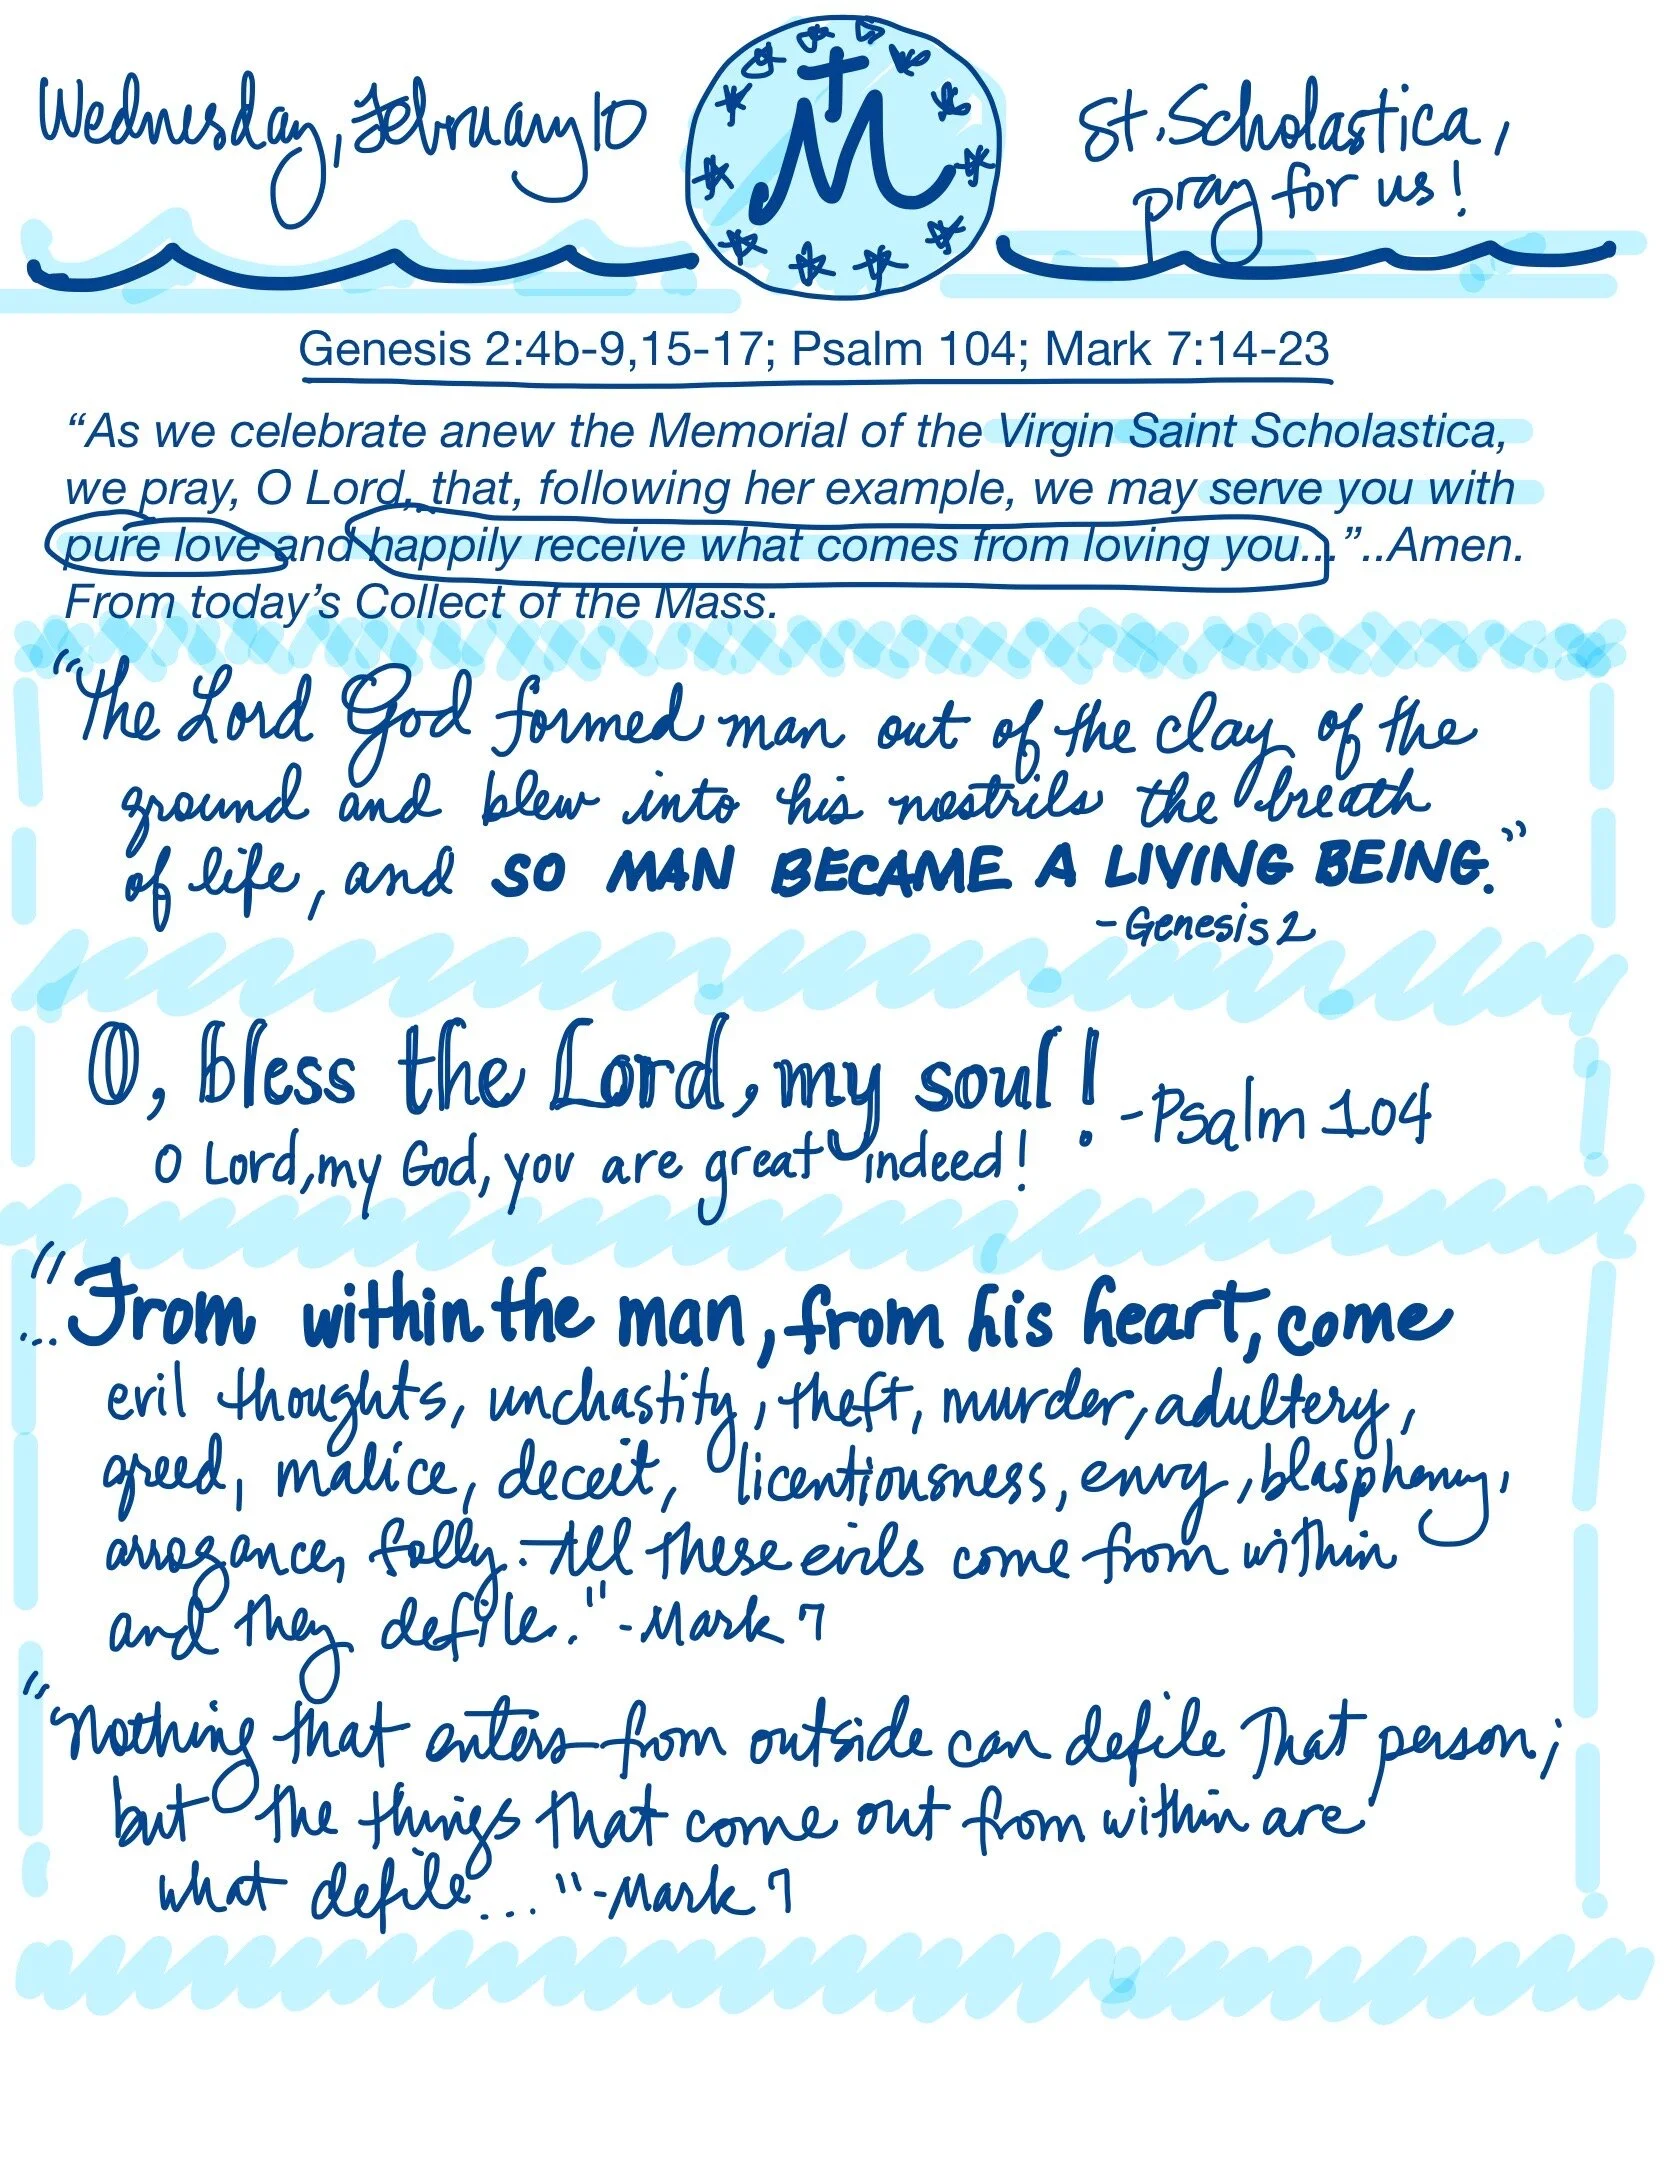 Wednesday, February 10
M
St. Scholastica,
pray for us!
Genesis 2:4b-9,15-17; Psalm 104; Mark 7:14-23
“As we celebrate anew the Memorial of the Virgin Saint Scholastica,
we pray, O Lord, that, following her example, we may serve you with
pure love and happily receive what comes from loving you...”..Amen.
From today’s Collect of the Mass.
“The Lord God formed man out of the clay of the
ground and blew into his nostrils the breath
of life, and SO MAN BECAME A LIVING BEING.”
-Genesis 2
O, bless the Lord, my soul! -Psalm 104
O Lord, my God, you are great indeed!
"...From within the man, from his heart, come
evil thoughts, unchastity, theft, murder, adultery,
greed, malice, deceit, licentiousness, envy, blasphemy,
arrogance, folly. All these evils come from within
and they defile." -Mark 7
"Nothing that enters from outside can defile that person;
but the things that come out from within are
what defile..." -Mark 7